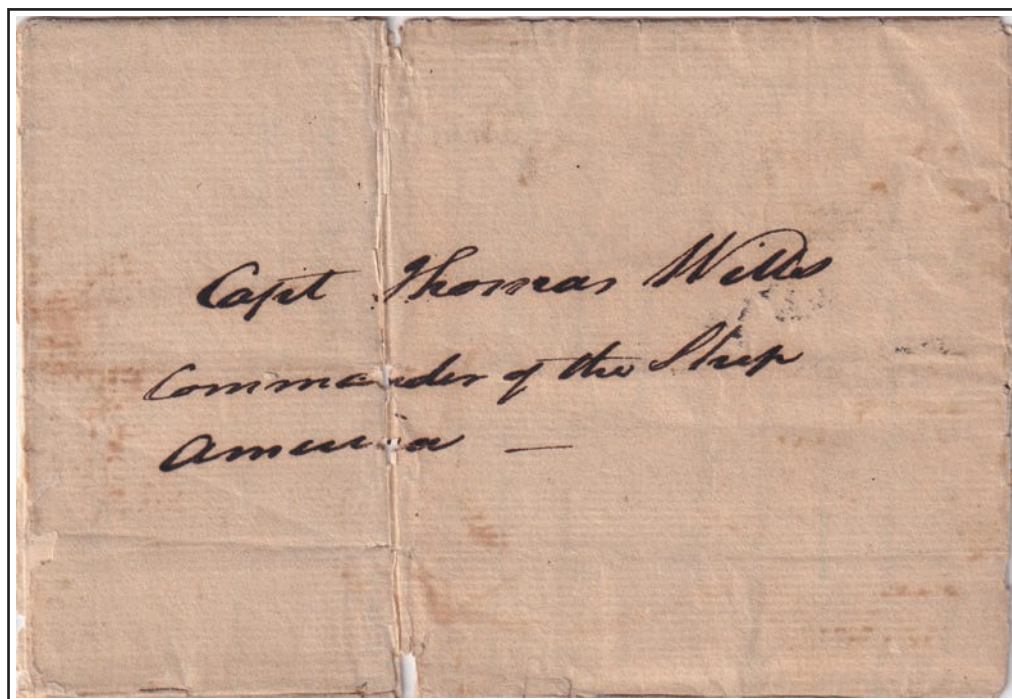 Capt Thomas Wills
Commander of the Ship
America —